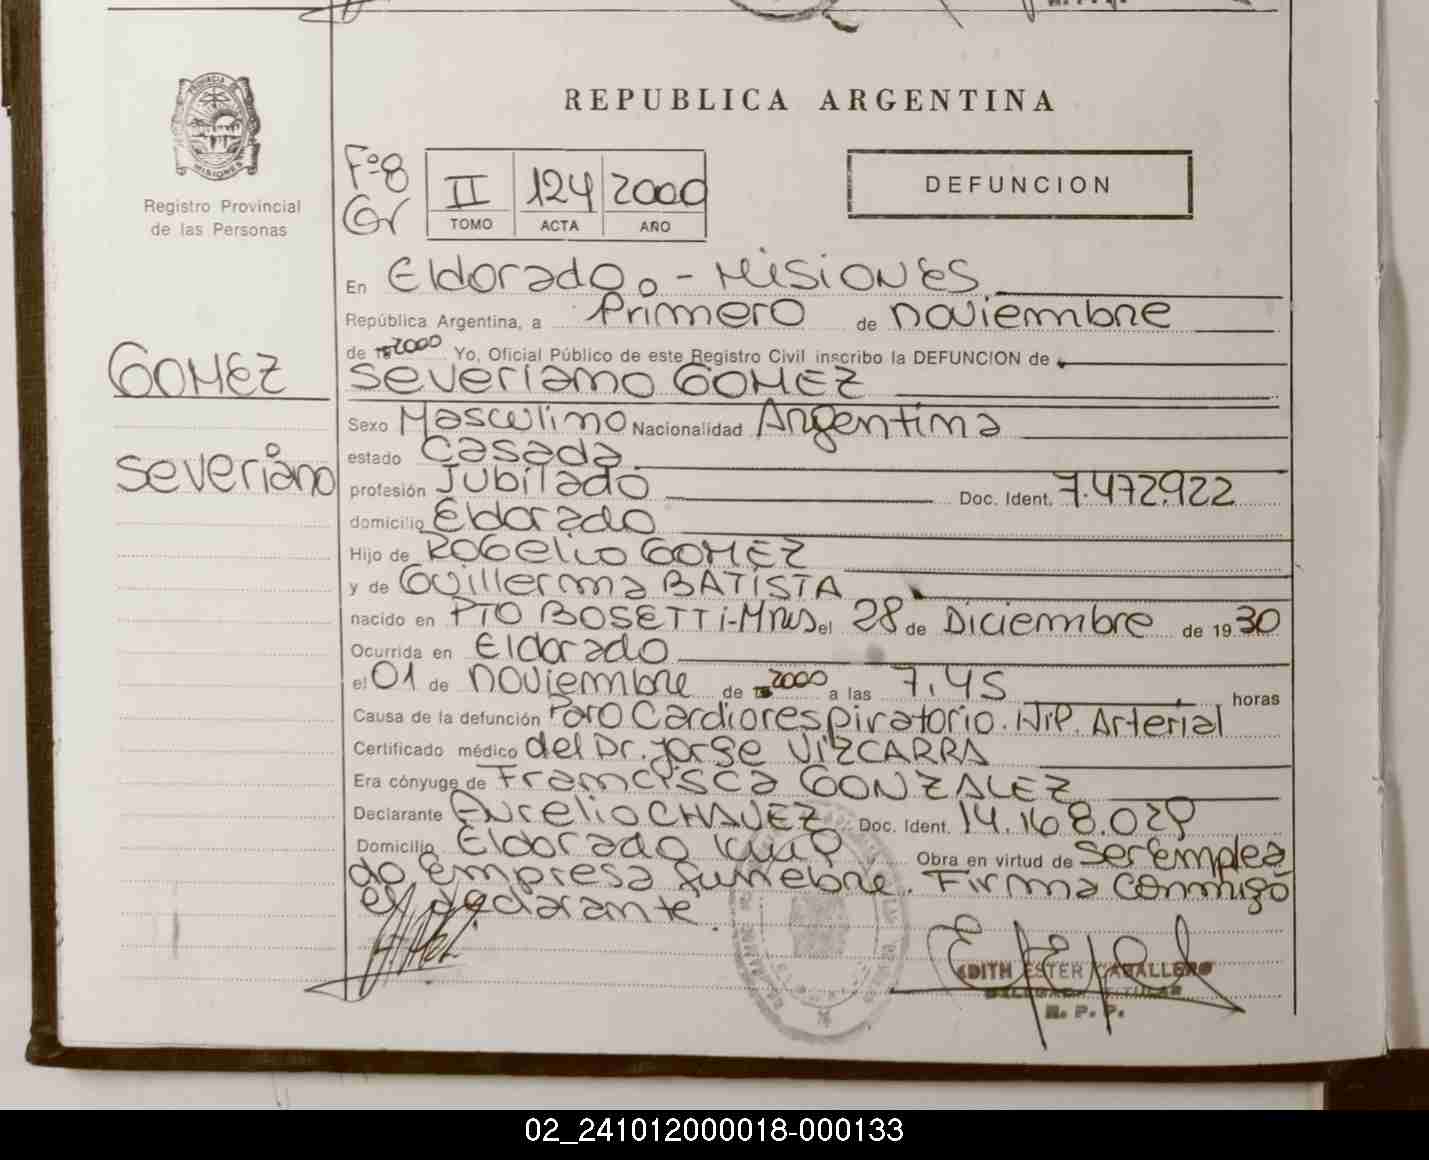 REPUBLICA ARGENTINA
Registro Provincial
de las Personas
Fº8
Gr
II 124 2000
TOMO ACTA AÑO
DEFUNCION
En Eldorado - Misiones
República Argentina, a Primero de noviembre
de 2000 Yo, Oficial Público de este Registro Civil inscribo la DEFUNCION de
GOMEZ
Severiano GOMEZ
Sexo Masculino Nacionalidad Argentina
Severiano
estado Casada
profesión Jubilado Doc. Ident. 7.472.922
domicilio Eldorado
Hijo de ROGelio GOMEZ
y de Guillerma BATISTA
nacido en PTO BOSETTi-Mnes el 28 de Diciembre de 1930
Ocurrida en Eldorado
el 01 de noviembre de 2000 a las 7,45 horas
Causa de la defunción Paro Cardiorespiratorio. Hip. Arterial
Certificado médico del Dr. Jorge VIZCARRA
Era cónyuge de Francisca GONZALEZ
Declarante Aurelio CHAVEZ Doc. Ident. 14.168.029
Domicilio Eldorado Obra en virtud de ser emplea
do Empresa funebre. Firma conmigo
el declarante
EDITH ESTER CABALLERO
DELEGADA TITULAR
R. P. P.
02_241012000018-000133